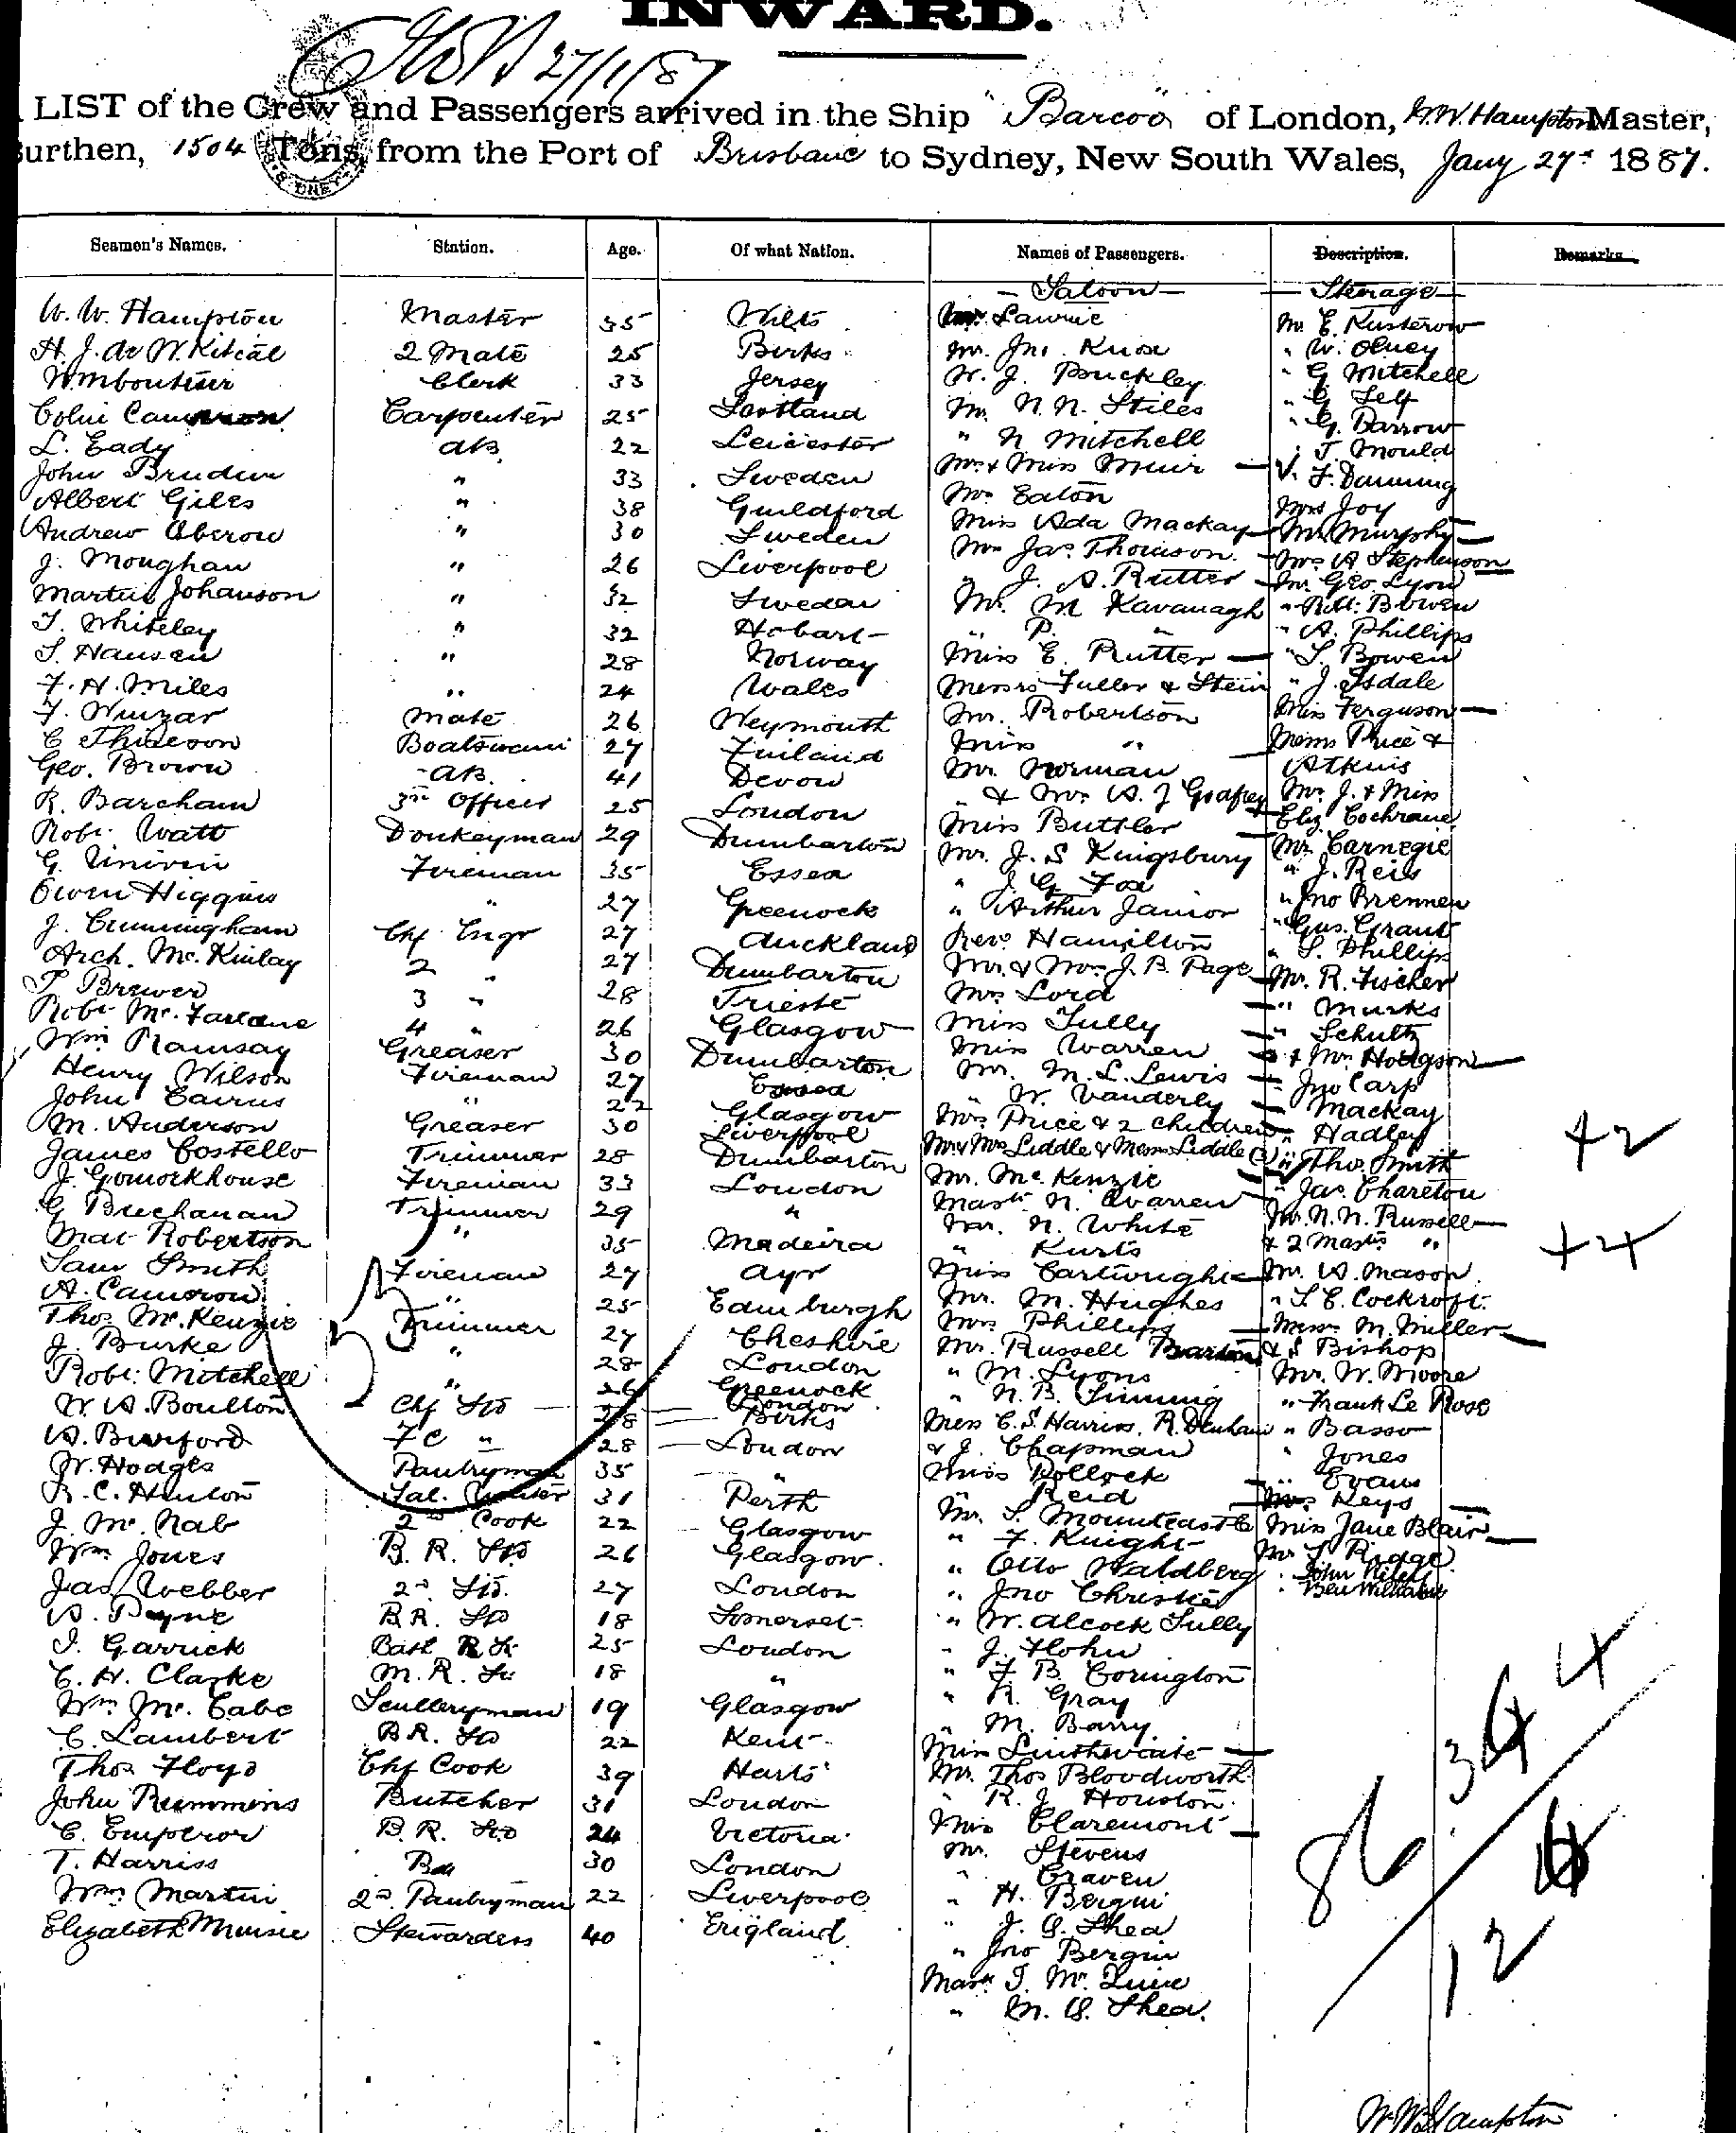 INWARD.
27/1/87
LIST of the Crew and Passengers arrived in the Ship "Barcoo" of London, W.W. Hampton Master,
Burthen, 1504 Tons, from the Port of Brisbane to Sydney, New South Wales, Jany 27th 1887.
Seamen's Names. Station. Age. Of what Nation. Names of Passengers. Description. Remarks.
— Saloon — — Steerage —
W. W. Hampton Master 35 Wilts Laurie Mr E. Kusterow
H. J. de W. Kitcat 2 Mate 25 Berks Mr. Jno. Knox " W. Olney
Clerk 33 Jersey W. J. Buckley " G Mitchell
Colin Cameron Carpenter 25 Scotland Mr. N. N. Stiles " G Self
L. Eady AB 22 Leicester " N Mitchell " G. Darrow
John Brudin " 33 Sweden Mr & Miss Muir — " T. Mould
Albert Giles " 38 Guildford Mr Eaton F. Dunning
Andrew Oberon " 30 Sweden Miss Ada Mackay — Mrs Joy
J. Moughan " 26 Liverpool Mr Jas. Thomson Mr Murphy —
Martin Johanson " 32 Sweden " J. A. Rutter Mrs A Stephenson
T. Whiteley " 32 Hobart Mr. M Kavanagh Mr. Geo Lyon
S. Hansen " 28 Norway " P. " " Robt. Bowen
F. H. Miles " 24 Wales Miss E. Rutter — " A. Phillips
F. Winzar Mate 26 Weymouth Messrs Fuller & Stein " S. Bowen
C Boatswain 27 Finland Mr. Robertson " J. Isdale
Geo. Brown AB. 41 Devon Miss " Miss Ferguson —
R. Barcham 3rd Officer 25 London Mr Norman Messrs Price &
Robt. Watt Donkeyman 29 Dumbarton " & Mrs A. J Godfrey Atkins
G. Fireman 35 Essex Miss Buttler Mr. J. & Miss
Owen Higgins " 27 Greenock Mr. J. S Kingsbury Eliz Cochrane
J. Cunningham Chf Engr 27 Auckland " J. G Fox Mr. Carnegie
Arch. McKinlay 2 " 27 Dumbarton " Arthur Janior " J. Reis
T Brewer 3 " 28 Trieste Rev. Hamilton " Jno Brennen
Robt McFarlane 4 " 26 Glasgow Mr. & Mrs. J. B. Page " Gus. Grant
Wm Ramsay Greaser 30 Dumbarton Mrs Lord " S. Phillips
Henry Wilson Fireman 27 Essex Miss Tully Mr. R. Fischer
John Cairns " 22 Glasgow Miss Warren " Murks
M. Anderson Greaser 30 Liverpool Mr. M. L. Lewis " Schultz
James Costello Trimmer 28 Dumbarton " W. Vanderly " & Mrs Hodgson —
J. Gomorkhouse Fireman 33 London Mrs Price & 2 children Jno Carp
G Buchanan Trimmer 29 " Mr & Mrs Liddle & Messrs Liddle (3) Mackay
Mat Robertson " 35 Madeira Mr. McKenzie " Hadley
Saml Smith Fireman 27 Ayr Mastr N. Warren " Thos. Smith
A. Cameron " 25 Edinburgh Mr. N. White " Jas. Chareton
Thos McKenzie Trimmer 27 Cheshire " Kurts Mr. N. N. Russell —
J. Burke " 28 London Miss Cartwright & 2 Mastrs "
Robt. Mitchell " 26 Greenock Mr. M. Hughes Mr. A. Mason
W. A. Boulton Chf Std 28 London Mrs Phillips " S. C. Cockroft
A. Burford F C " 28 London Mr. Russell Barton Messrs M. Miller
W. Hodges Pantryman 35 " " M. Lyons & S Bishop
R. C. Hinton Sal. Waiter 31 Perth " N. B. Simming Mr. W. Moore
J. McNab 2nd Cook 22 Glasgow Messrs C. S. Harriss, R. Denham " Frank Le Rose
Wm Jones B. R. Std 26 Glasgow & J. Chapman " Basso
Jas Webber 2nd Std. 27 London Miss Pollock " Jones
A. Payne B.R. Std 18 Somerset " Reid " Evans
J. Garrick 25 London Mr. S. Mountcastle Mrs Keys —
C. H. Clarke M. R. St. 18 " " F. Knight Miss Jane Blair —
Wm McCabe Sculleryman 19 Glasgow " Otto Waldberg Mr T Ridge
C. Lambert B.R. Std 22 Kent " Jno Christie " John Riley
Thos Floyd Chf Cook 39 Harts " W. Alcock Tully " Ben Williams
John Rummins Butcher 31 London " J. Hohn
C. Emperor B. R. Std 24 Victoria " F B. Corington
T. Harriss 30 London " R. Gray
Wm Martin 2nd Pantryman 22 Liverpool " M. Barry
Elizabeth Stewardess 40 England Miss Linthwaite —
Mr. Thos Bloodworth
" R. J. Houston
Miss Claremont —
Mr. Stevens
" Craven
" H. Bergin
" J. O. Shea
" Jno Bergin
Mastr T. McQuire
" M. O. Shea.
+2
+4
86
34
4
12
W.W. Hampton